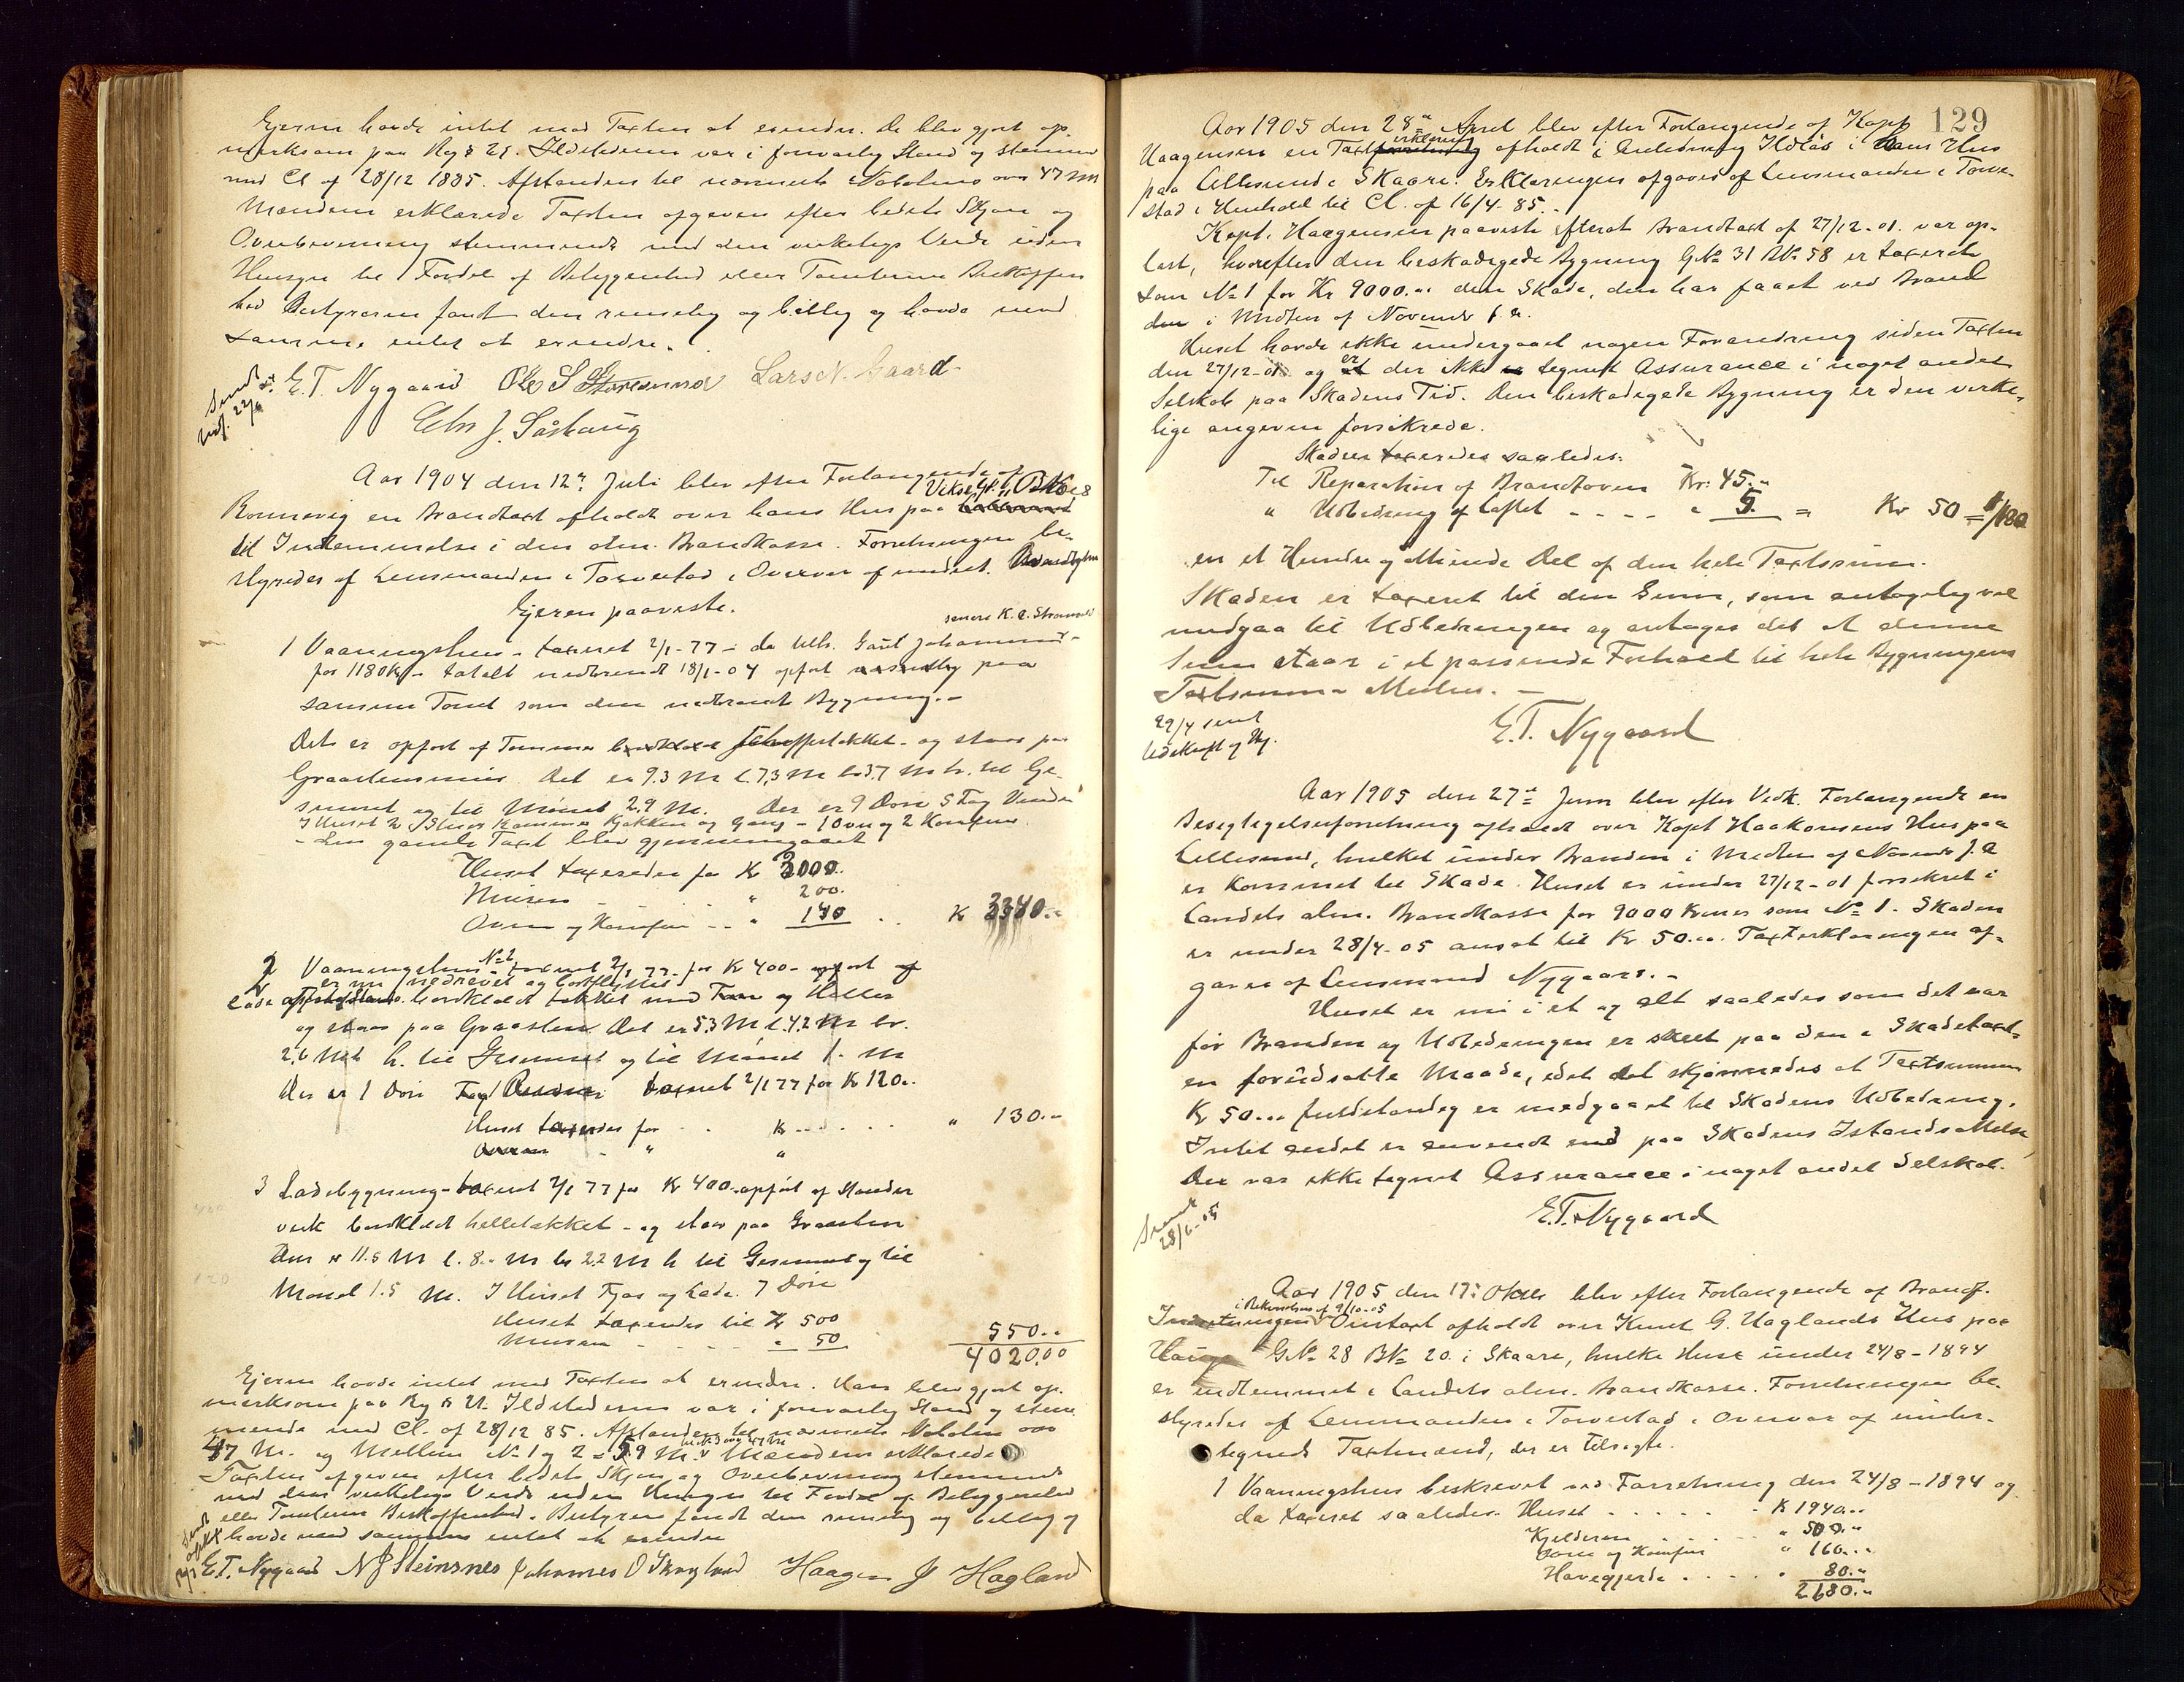 Ejeren havde intet mod Taxten at erindre. De blev gjort op-
merksom paa Reg § 21. Ildstederne var i forsvarlig Stand og stemmer
med Cl af 28/12 1885. Afstanden til nærmeste Nabohus over 47 m
Mændene erklærede Taxten afgiven efter bedste Skjøn og
Overbevisning stemmende med den virkelige Verdi uden
Hensyn til Fordel af Beliggenhed eller Tomterne Beskaffen
hed Bestyreren fandt den rimelig og billig og havde mod
samme intet at erindre.
E. T. Nygaard Ole S Lars N. Gaard
Chr J. Såshaug
Send
Aar 1904 den 12te Juli blev efter Forlangende af
Rønnevig en Brandtaxt afholdt over hans Hus paa
til Indlemmelse i den alm. Brandkasse. Forretningen be-
styredes af Lensmanden i Torvestad i Overvær af
Ejeren paaviste.
senere K. A.
1 Vaaningshus - taxeret 2/1-77 - da tilh. Gaut Johannes-
for 1180 Kr - totalt nedbrendt 18/1-04 opført paa
samme Tomt som den nedbrendte Bygning.-
Det er opført af Tømmer skiffertækket - og staar paa
Graastensmur. Det er 9.3 M l. 7,3 M b 3.7 M h. til Ge-
simset og til Mønet 2,9 M. Der er 9 Døre 5 Fag Vinduer
I Huset 2 Stuer Kammer Kjøkken og gang - 1 Ovn og 2 Komfur
- Den gamle Taxt blev gjennemgaaet
Huset taxeredes for Kr 3000..
Muren - " 200.
Ovn og Komfur .. " 140 .. K 3340..
2 Vaaningshus No 2 taxeret 2/1 77 for Kr 400 - opført af
er nu nedrevet og bortflyttet
Lade bordklædt tækket med og Heller
og staar paa Graasten. Det er 5.3 M l. 4.2 M br.
2,6 M h. til Gesimset og til Mønet 1. M
Der er 1 Dør Fag taxeret 2/1 77 for Kr 120..
Huset taxeredes for . . K . . . . . " 130..
Ovnen " "
3 Ladebygning - taxeret 2/1 77 for Kr 400. opført af Stender
verk bordklædt helletækket - og staar paa Graasten
Den er 11.5 M l. 8.. M br 2.2 M h til Gesimset og til
Mønet 1.5 M. I Huset Fjøs og Lade. 7 Døre
Huset taxeredes til Kr 500
Muren - . . . " 50 550..
4020,00
Ejeren havde intet mod Taxten at erindre. Han blev gjort op-
merksom paa Reg § 21. Ildstederne var i forsvarlig Stand og stem-
mende med Cl. af 28/12 85. Afstanden til nærmeste Nabohus over
47 M. og Mellem No 1 og 2 = 5.9 M. Mændene erklærede
Taxten afgiven efter bedste Skjøn og Overbevisning stemmende
med den virkelige Verdi uden Hensyn til Fordel af Beliggenhed
eller Tomtens Beskaffenhed. Bestyreren fandt den rimelig og billig og
havde mod samme intet at erindre
E. T. Nygaard N J Steinsnes Johannes O Skogland Haagen J Hagland
129
Aar 1905 den 28de April blev efter Forlangende af Kapt
Haagensen en Taxterklæring afholdt i Anledning Ildløs i Hans Hus
paa Lillesund i Skaare. Erklæringen afgaves af Lensmanden i Torve-
stad i Henhold til Cl. af 16/4-85.-
Kapt. Haagensen paaviste efterat Brandtaxt af 27/12-01. var op-
læst, hvorefter den beskadigede Bygning GNo 31 BNo 58 er taxeret
som No 1 for Kr 9000... den Skade, den har faaet ved Brand
den i Midten af Novembr f. a.
Huset havde ikke undergaaet nogen Forandring siden Taxten
den 27/12-01 og er der ikke tegnet Assurance i noget andet
Selskab paa Skadens Tid. Den beskadigede Bygning er den virke-
lige angiven forsikrede.
Skaden taxeredes saaledes.
Til Reparation af Brandhoven Kr. 45..
" Udbedring af Loftet - - - - " 5. = Kr 50 = 1/180
en et Hundre og ottiende Del af den hele Taxtsum.
Skaden er taxeret til den Sum, som antagelig vil
medgaa til Udbedringen og antages det at denne
Sum staar i et passende Forhold til hele Bygningens
Taxtsum
29/4 sendt
Udskrift
E. T. Nygaard
Aar 1905 den 27de Juni blev efter Vedk. Forlangende en
Besigtigelsesforretning afholdt over Kapt Haakonsens Hus paa
Lillesund, hvilket under Branden i Midten af Novembr f. A
er kommet til Skade. Huset er under 27/12-01 forsikret i
Landets alm. Brandkasse for 9000 Kroner som No 1. Skaden
er under 28/4-05 ansat til Kr 50... Taxterklæringen af-
gaves af Lensmand Nygaard.-
Huset er nu i et og alt saaledes som det var
før Branden og Udbedringen er skeet paa den i Skadetaxt-
en forudsatte Maade, idet det skjønnedes at Taxtsummen
Kr 50... fuldstændig er medgaaet til Skadens Udbedring.
Intet andet er anvendt end paa Skadens Istandsættelse
Der var ikke tegnet Assurance i noget andet Selskab.
Sendt
28/6-05
E. T. Nygaard
Aar 1905 den 17: Oktbr blev efter Forlangende af Brandf.
i Bekjendtelse af 9/10-05
Indretningen Omtaxt afholdt over Knut G. Haglands Hus paa
Hauge GNo 28 BNo 20. i Skaare, hvilke Huse under 24/8-1894
er indlemmet i Landets alm. Brandkasse. Forretningen be-
styredes af Lensmanden i Torvestad i Overvær af under-
tegnede Taxtmænd, der er tilsagte.
1 Vaaningshus beskrevet ved Forretning den 24/8-1894 og
da taxeret saaledes. Huset . . . . . . K 1940...
Kjelderen . . . . . " 500..
Ovne og Komfur " 160...
Havegjerde . . . . " 80..
2680..